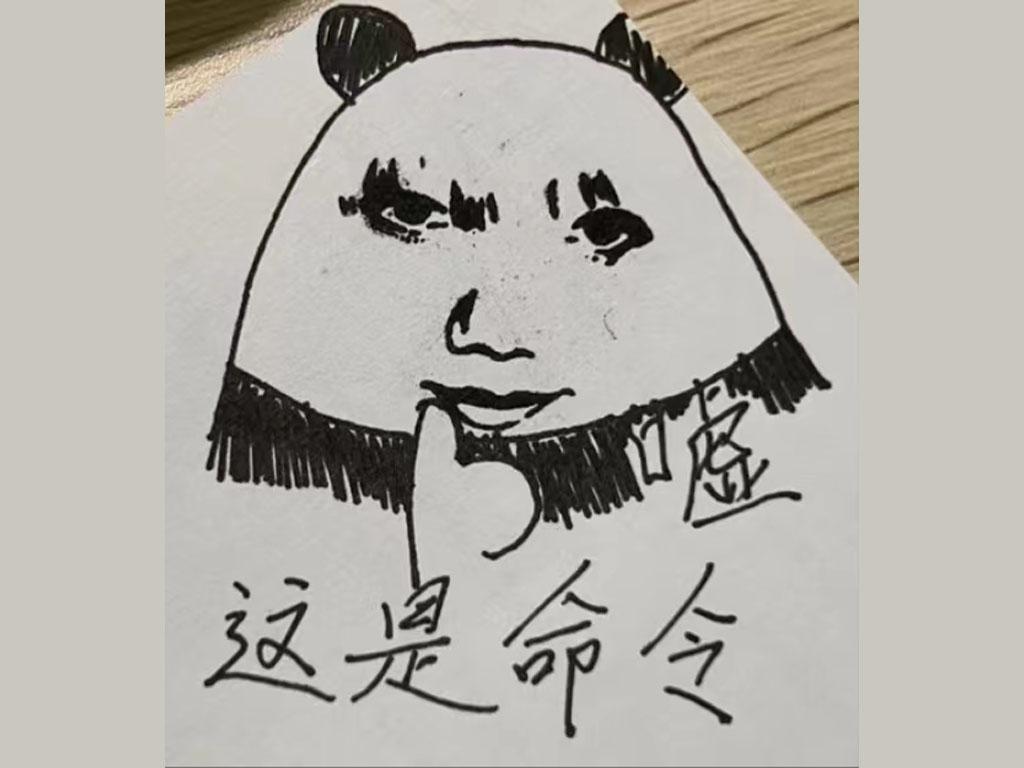 嘘
这是命令